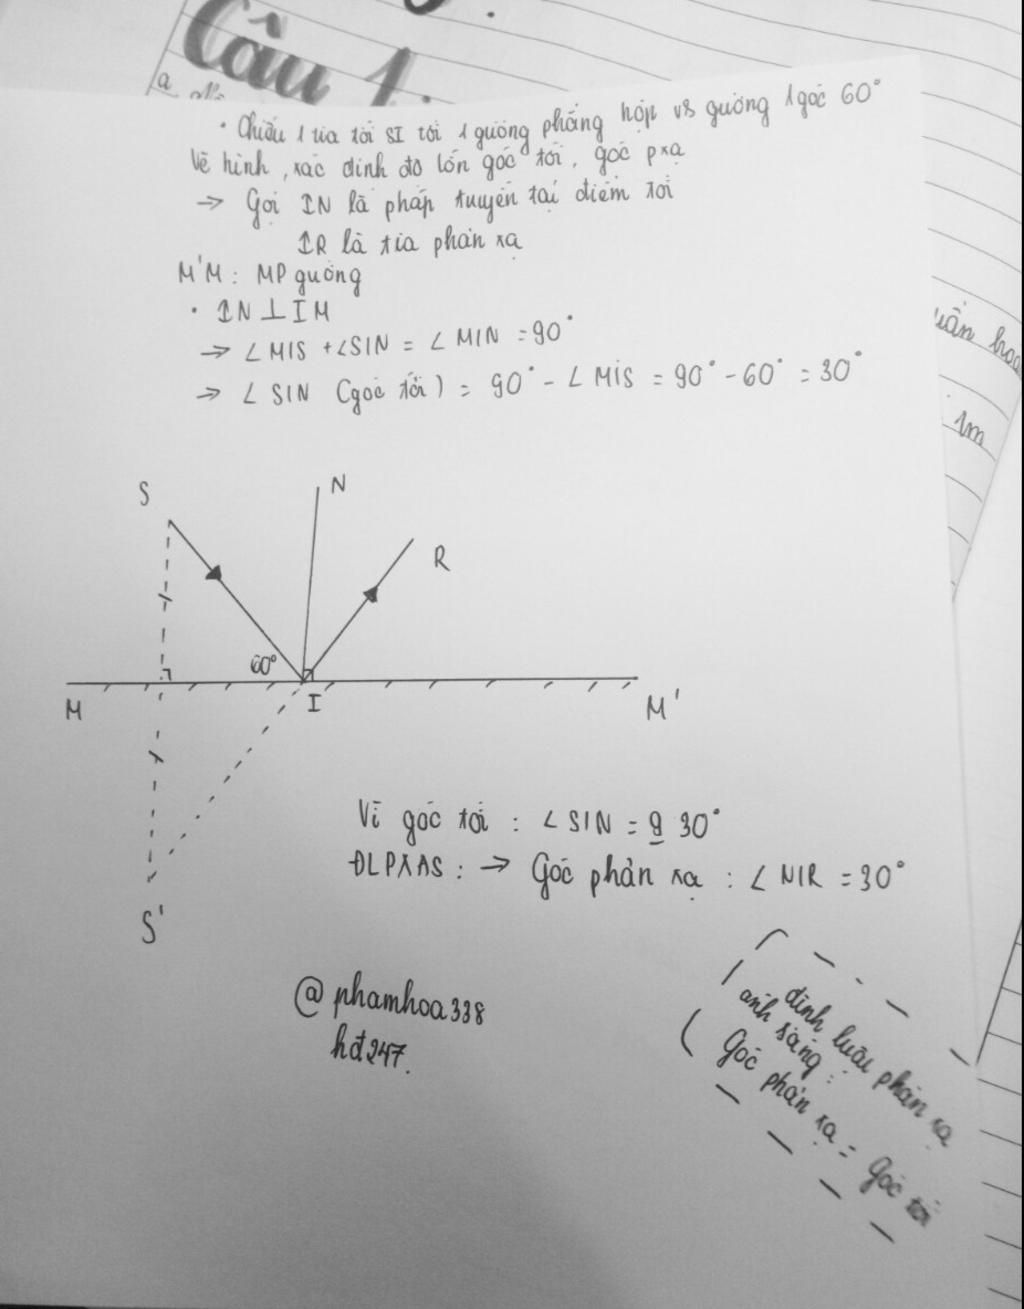 Câu 1.
a
• Chiếu 1 tia tới SI tới 1 gương phẳng hợp vs gương 1 góc 60°
Vẽ hình, xác định độ lớn góc tới, góc pxạ
→ Gọi IN là pháp tuyến tại điểm tới
IR là tia phản xạ
M'M: MP gương
• IN ⊥ IM
→ ∠MIS + ∠SIN = ∠MIN = 90°
→ ∠SIN (góc tới) = 90° - ∠MIS = 90° - 60° = 30°
1m
S
N
R
60°
M
I
M'
S'
Vì góc tới : ∠SIN = 30°
ĐLPXAS : → Góc phản xạ : ∠NIR = 30°
@phamhoa338
hđ247.
định luật phản xạ
ánh sáng :
Góc phản xạ = góc tới